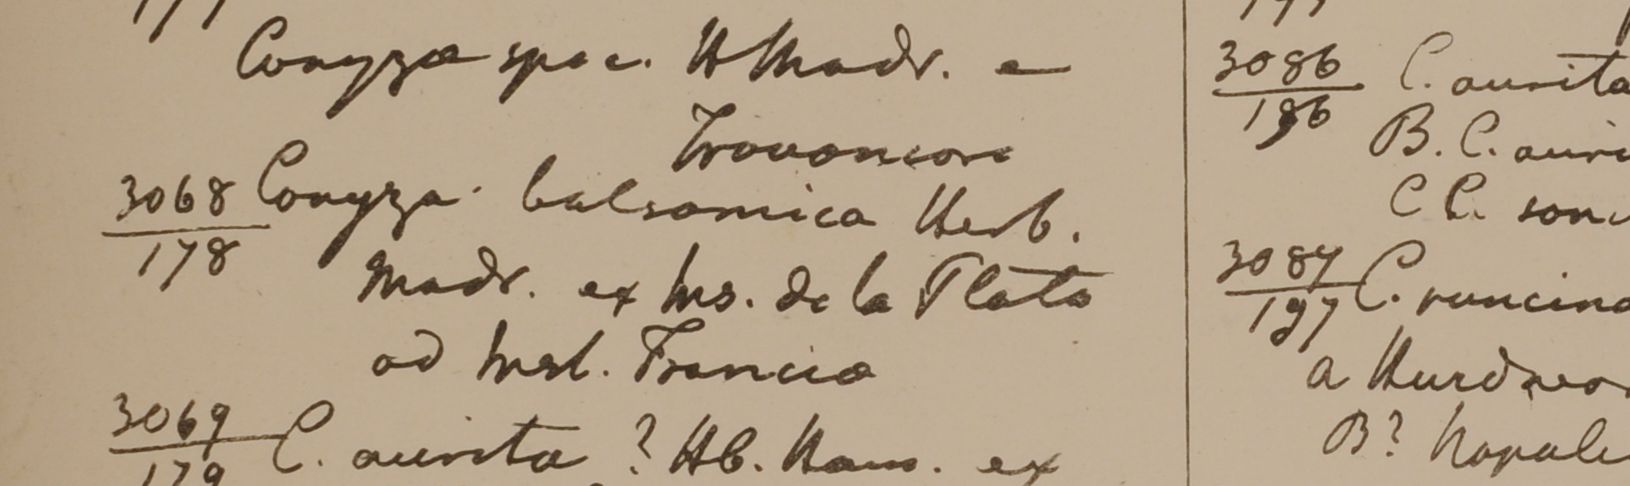 177
Conyzae spec. H Madr. e
Travancore
3068 Conyza balsamica Herb.
178
Madr. ex Ins. de la Plata
ad Insl. Francia
3069 C. aurita ? HB. Ham. ex
179
197
3086 C. aurita
186
B. C. auri
C C. son
3087 C. runcina
197
a Hurdwar
B? Napale